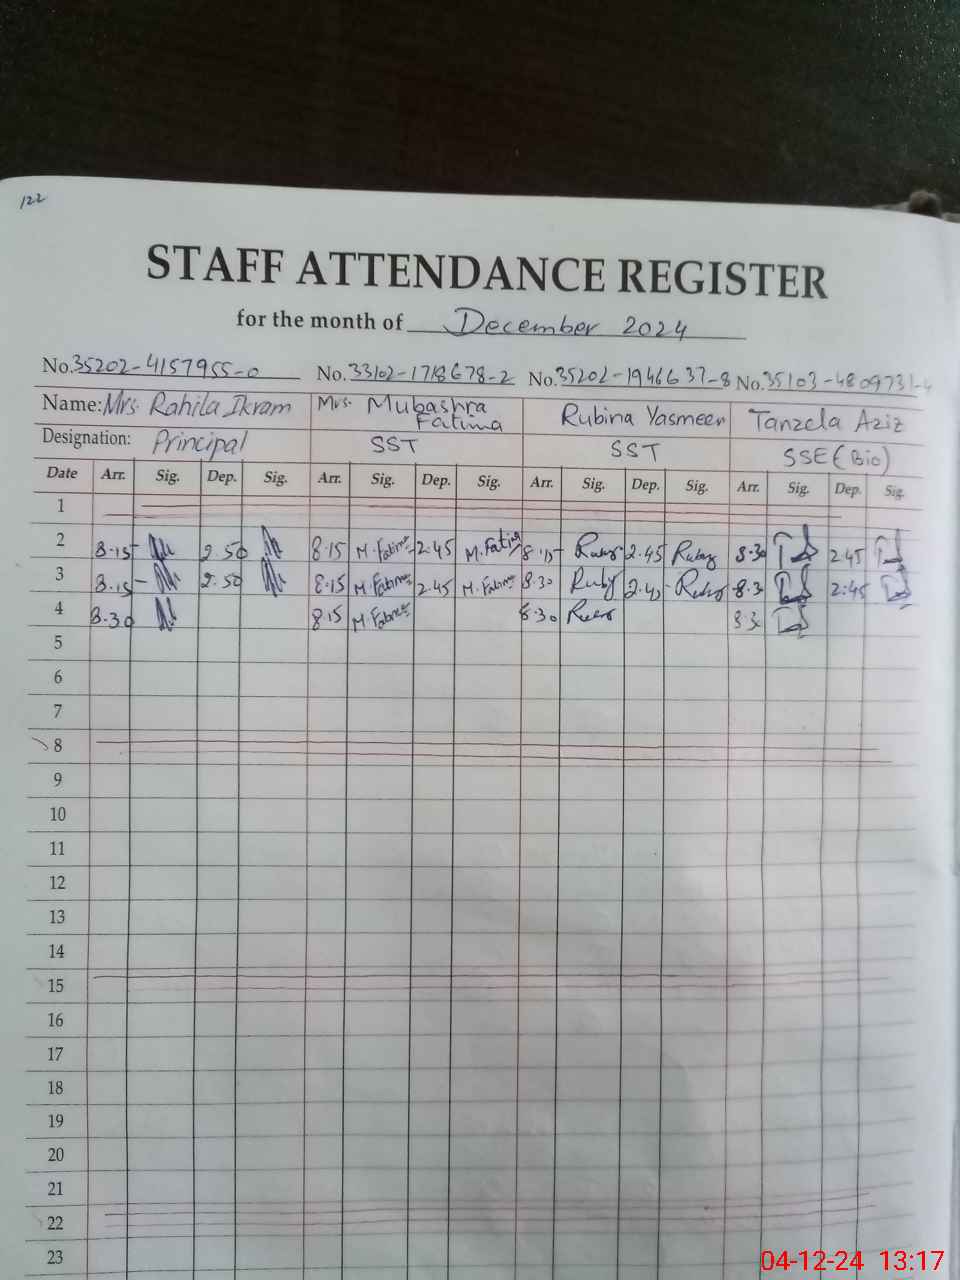 122
STAFF ATTENDANCE REGISTER
for the month of December 2024
No. 35202-4157955-0 No. 33102-1718678-2 No. 35202-1946637-8 No. 35103-4809731-4
Name: Mrs. Rahila Ikram Mrs. Mubashra Fatima Rubina Yasmeen Tanzela Aziz
Designation: Principal SST SST SSE (Bio)
Date Arr. Sig. Dep. Sig. Arr. Sig. Dep. Sig. Arr. Sig. Dep. Sig. Arr. Sig. Dep. Sig.
1
2 8.15 2.50 8.15 M.Fatima 2.45 M.Fatima 8.15 Ruby 2.45 Ruby 8.30 2.45
3 8.15 2.50 8.15 M.Fatima 2.45 M.Fatima 8.30 Ruby 2.45 Ruby 8.30 2:45
4 8.30 8.15 M.Fatima 8.30 8.30
5
6
7
8
9
10
11
12
13
14
15
16
17
18
19
20
21
22
23
04-12-24 13:17